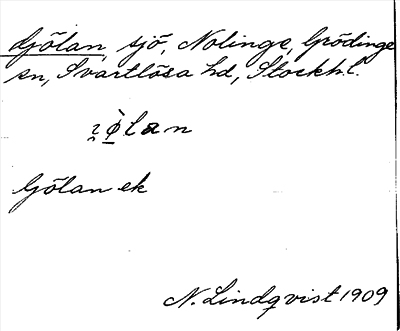 Gjölan, sjö, Nolinge, Grödinge
sn, Svartlösa hd, Stockh.l.
Gölan ek
N. Lindqvist 1909